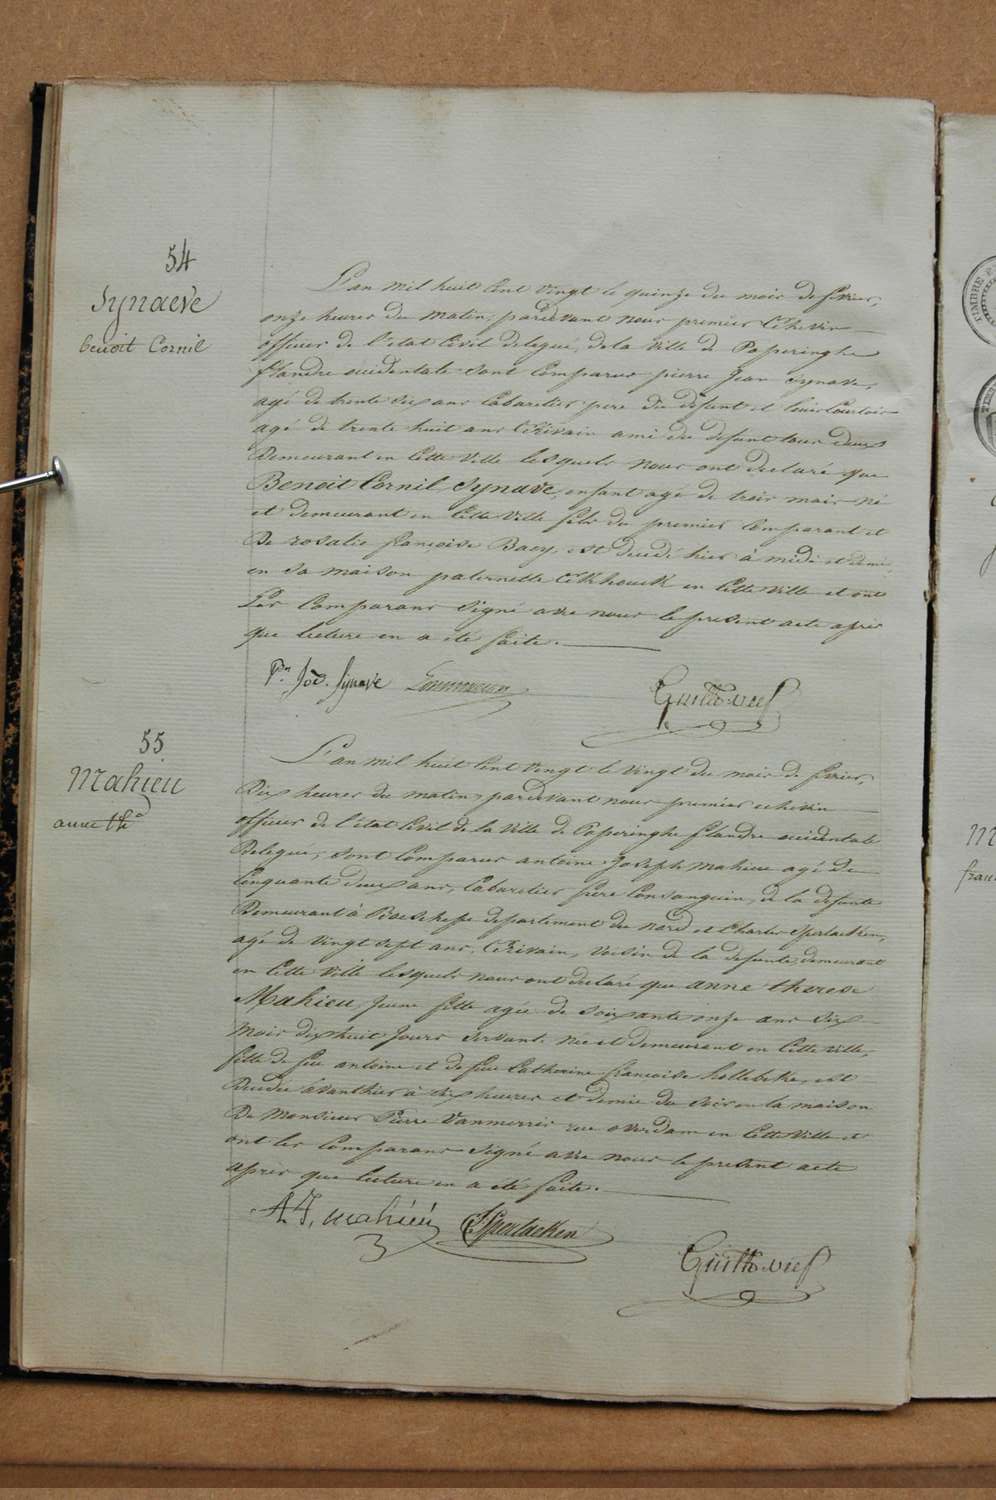 54
Synaeve
benoit Cornil
L'an mil huit cent vingt le quinze du mois de fevrier,
onze heures du matin, pardevant nous premier Echevin
officier de l'etat Civil delegué, de la ville de Poperinghe
flandre occidentale sont comparus pierre Jean Synave,
agé de trente six ans Cabaretier pere du defunt et Louis
agé de trente huit ans Ecrivain ami du defunt tous deux
demeurant en cette ville lesquels nous ont declaré que
Benoit Cornil Synave, enfant agé de trois mois né
et demeurant en cette ville fils du premier comparant et
de rosalie françoise Baey, est decedé hier à midi et demi,
en sa maison paternelle en cette ville et ont
les comparans signé avec nous le present acte apres
que lecture en a été faite.
Synave
55
Mahieu
anne th.e
L'an mil huit cent vingt le vingt du mois de fevrier,
dix heures du matin, pardevant nous premier echevin
officier de l'etat Civil de la ville de Poperinghe flandre occidentale
delegué, sont comparus antoine Joseph Mahieu agé de
cinquante deux ans, Cabaretier frere consanguin, de la defunte
demeurant à Boeschepe departement du nord et Charles Sperlaeken,
agé de vingt sept ans, Ecrivain, voisin de la defunte, demeurant
en cette ville lesquels nous ont declaré que anne therese
Mahieu, jeune fille agée de soixante onze ans dix
mois dix huit jours servant. née et demeurant en cette ville,
fille de feu antoine et de feue Catherine françoise hollebeke, est
decedée avanthier à dix heures et demie du soir en la maison
de Monsieur Pierre Vanmerris rue overdam en cette ville et
ont les comparans signé avec nous le present acte
apres que lecture en a été faite.
A. J. mahieu Sperlaeken